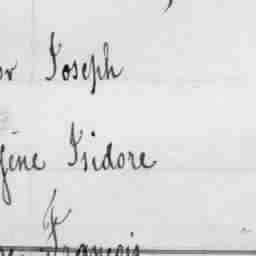 or Joseph
gène Isidore
François